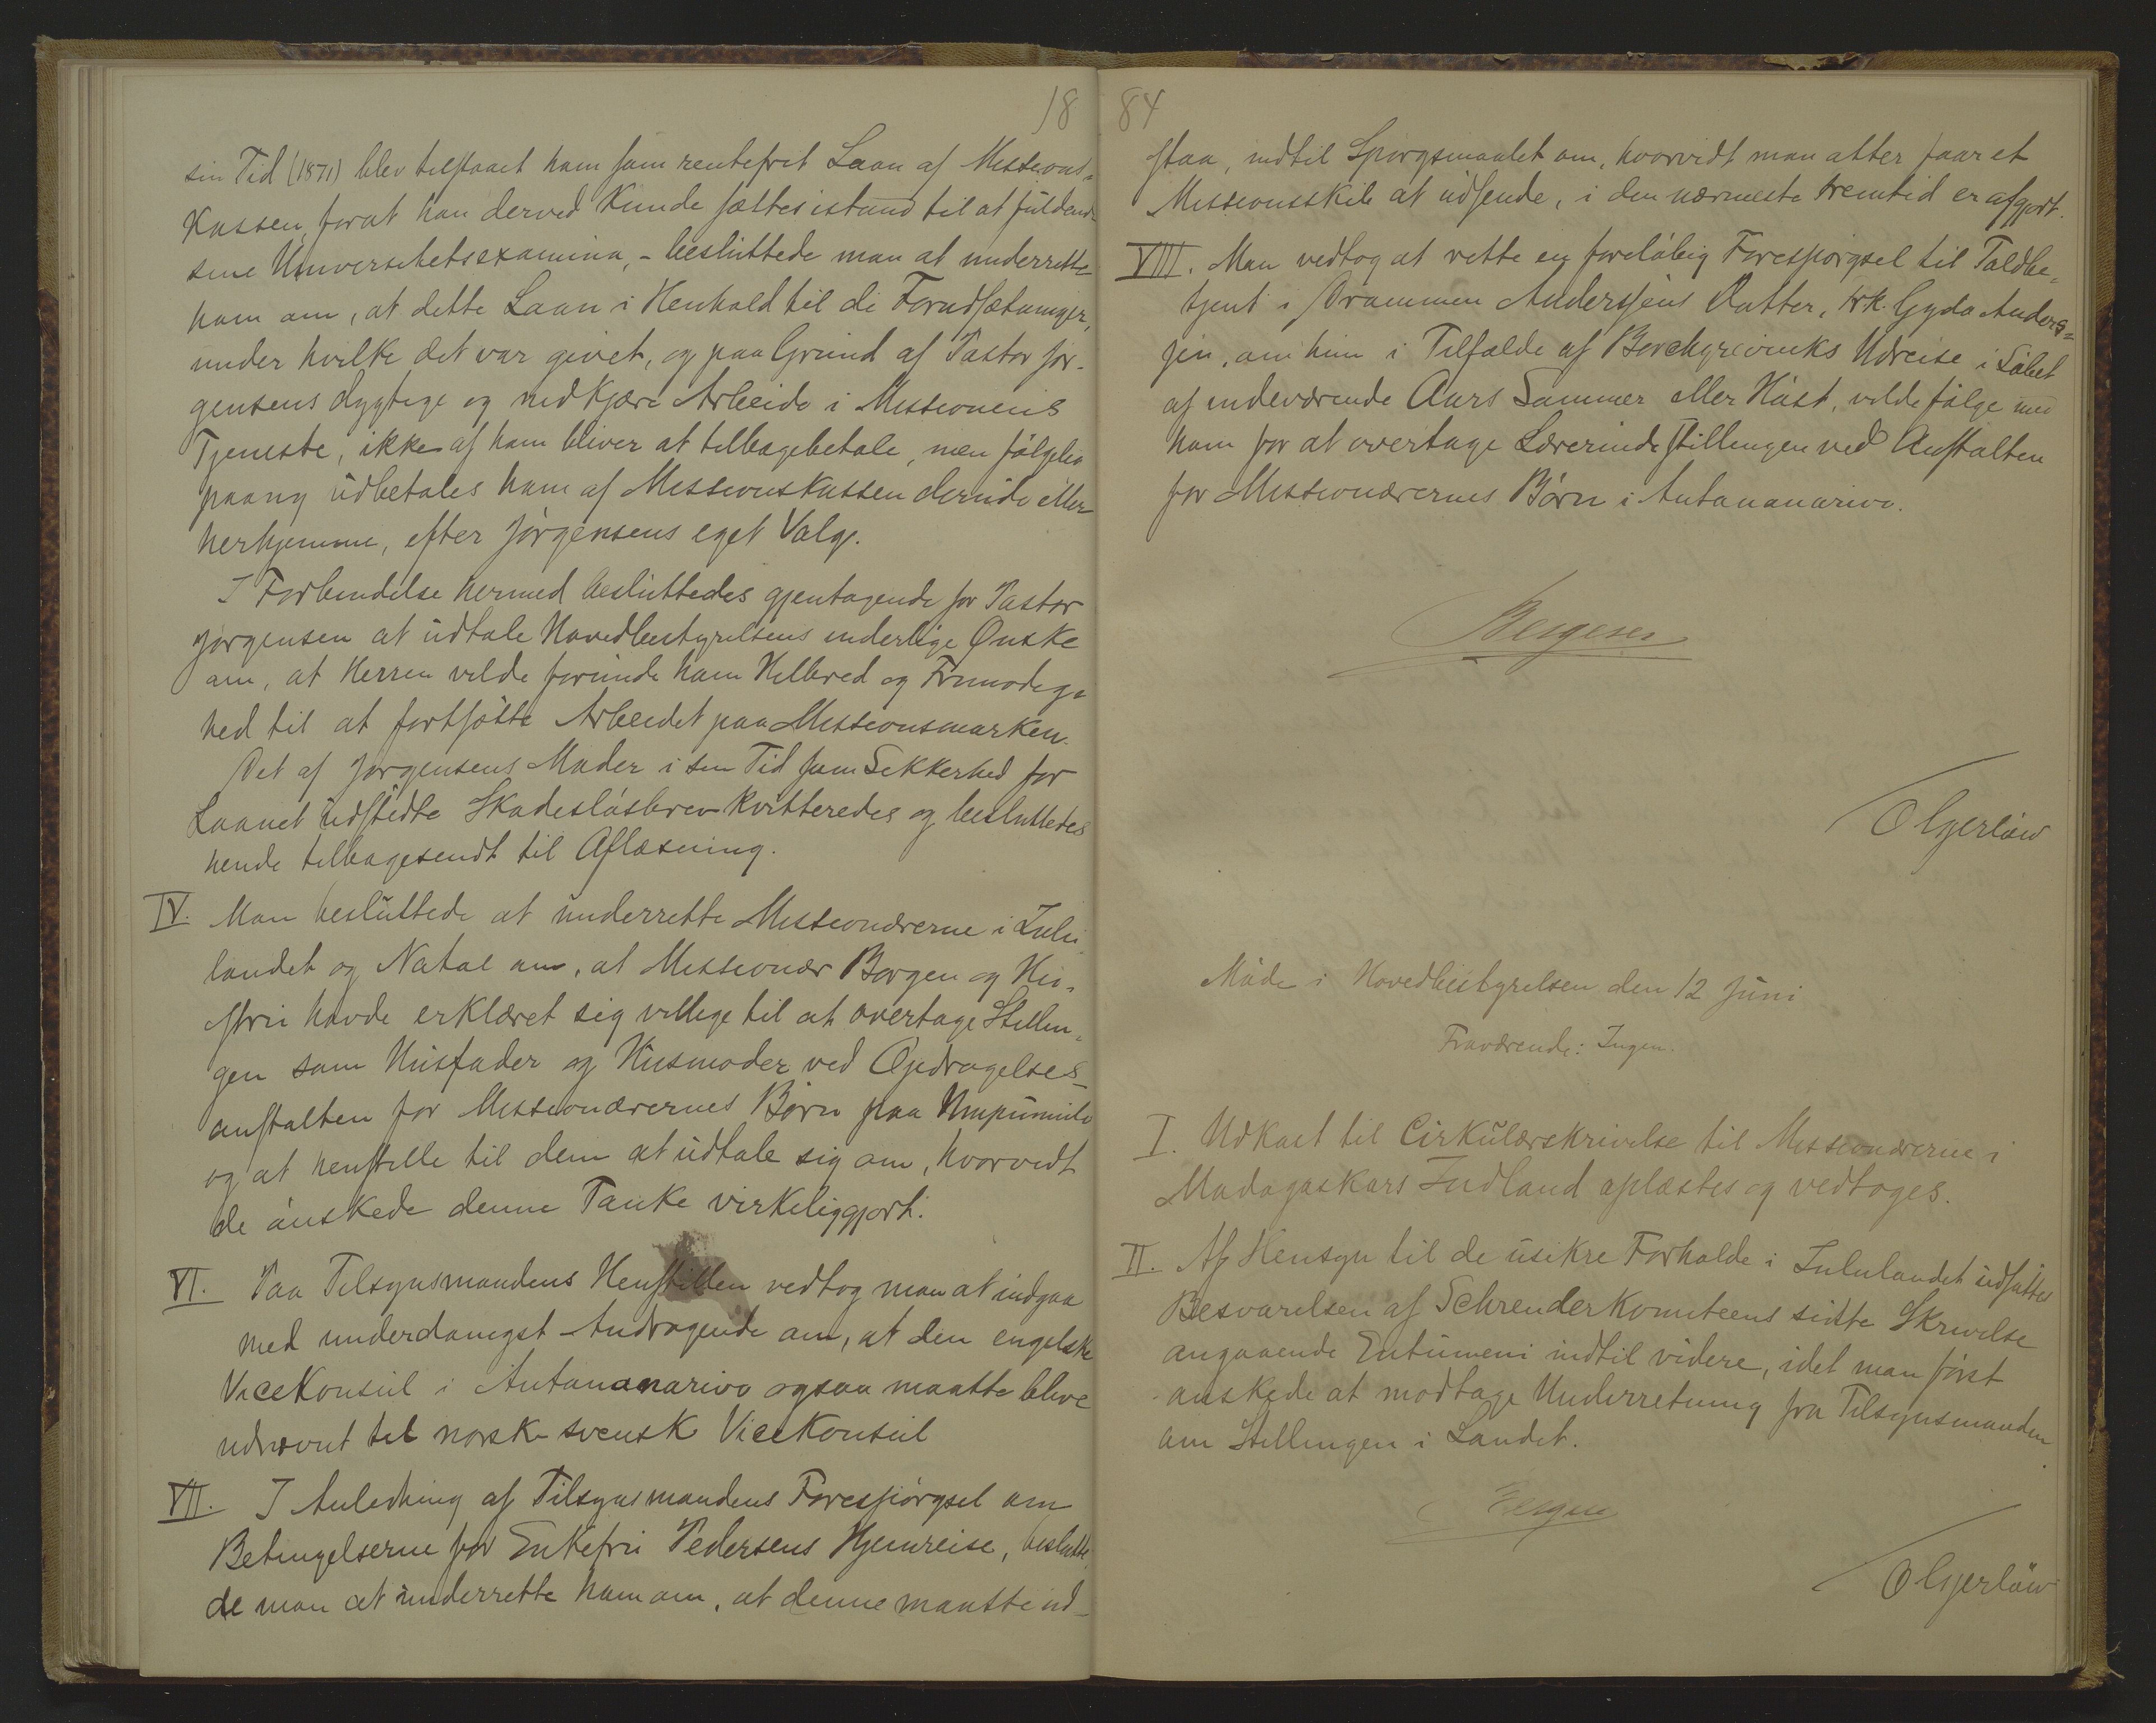 18
sin Tid (1871) blev tilstaaet ham som rentefrit Laan af Missions-
kassen, forat han derved kunde sættes istand til at fuldende
sine Universitetsexamina, - besluttede man at underrette
ham om, at dette Laan i Henhold til de Forudsætninger,
under hvilke det var givet, og paa Grund af Pastor Jør-
gensens dygtige og nidkjære Arbeide i Missionens
Tjeneste, ikke af ham bliver at tilbagebetale, men følgelig
paany udbetales ham af Missionskassen derude eller
herhjemme, efter Jørgensens eget Valg.
I Forbindelse hermed besluttedes gjentagende for Pastor
Jørgensen at udtale Hovedbestyrelsens inderlige Ønske
om, at Herren vilde forunde ham Helbred og Frimodig-
hed til at fortsætte Arbeidet paa Missionsmarken.
Det af Jørgensens Moder i sin Tid som Sikkerhed for
Laanet udstedte Skadesløsbrev kvitteredes og besluttedes
hende tilbagesendt til Aflæsning.
IV. Man besluttede at underrette Missionærerne i Zulu
landet og Natal om, at Missionær Borgen og Hu-
stru havde erklæret sig villige til at overtage Stillin-
gen som Husfader og Husmoder ved Opdragelses-
anstalten for Missionærernes Børn paa Umpumulo
og at henstille til dem at udtale sig om, hvorvidt
de ønskede denne Tanke virkeliggjort.
VI. Paa Tilsynsmandens Henstillen vedtog man at indgaa
med underdanigst Andragende om, at den engelske
Vicekonsul i Antananarivo ogsaa maatte blive
udnævnt til norsk-svensk Vicekonsul
VII. I Anledning af Tilsynsmandens Forespørgsel om
Betingelserne for Enkefru Pedersens Hjemreise, beslutte
de man at underrette ham om, at denne maatte ud-
84
staa, indtil Spørgsmaalet om, hvorvidt man atter faar et
Missionsskib at udsende, i den nærmeste Fremtid er afgjort.
VIII. Man vedtog at rette en foreløbig Forespørgsel til Toldbe-
tjent i Drammen Anderssens Datter, Frk. Gyda Anders-
sen, om hun i Tilfælde af Borchgrevinks Udreise i Løbet
af indeværende Aars Sommer eller Høst, vilde følge med
ham for at overtage Lærerindestillingen ved Anstalten
for Missionærernes Børn i Antananarivo.
Bergesen
O Gjerløw
Møde i Hovedbestyrelsen den 12 Juni
Fraværende: Ingen.
I. Udkast til Cirkulærskrivelse til Missionærerne i
Madagaskars Indland oplæstes og vedtoges.
II. Af Hensyn til de usikre Forholde i Zululandet udsattes
Besvarelsen af Schreuderkomiteens sidste Skrivelse
angaaende Entumeni indtil videre, idet man først
ønskede at modtage Underretning fra Tilsynsmanden
om Stillingen i Landet.
Bergesen
O Gjerløw